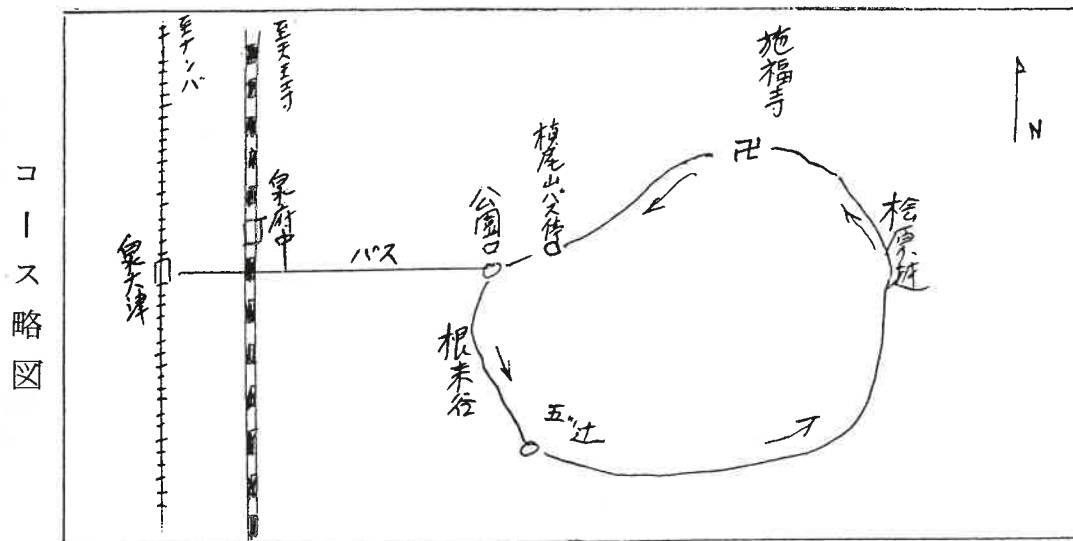 コース略図
至ナンバ
至天王寺
泉大津
泉府中
バス
公園
槙尾山バス停
施福寺
卍
桧原越
根来谷
五ツ辻
N